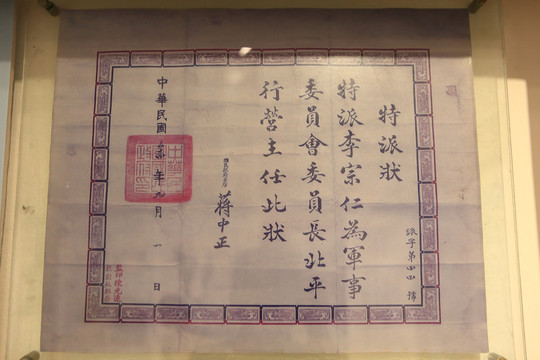 特派狀
特派李宗仁為軍事
委員會委員長北平
行營主任此狀
蔣中正
中華民國年九月一日
派字第四四號